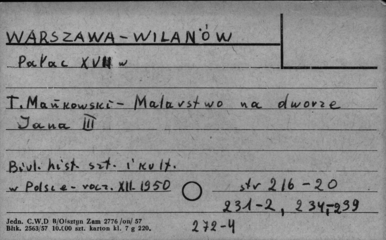 WARSZAWA-WILANÓW
Pałac XVII w
T. Mańkowski - Malarstwo na dworze
Jana III
Biul. hist. szt. i kult.
w Polsce - rocz. XII. 1950 str 216-20
231-2, 234-239
272-4
Jedn. C.W.D 8/Olsztyn Zam 2776 /on/ 57
Bhk. 2563/57 10.000 szt. karton kl. 7 g 220,